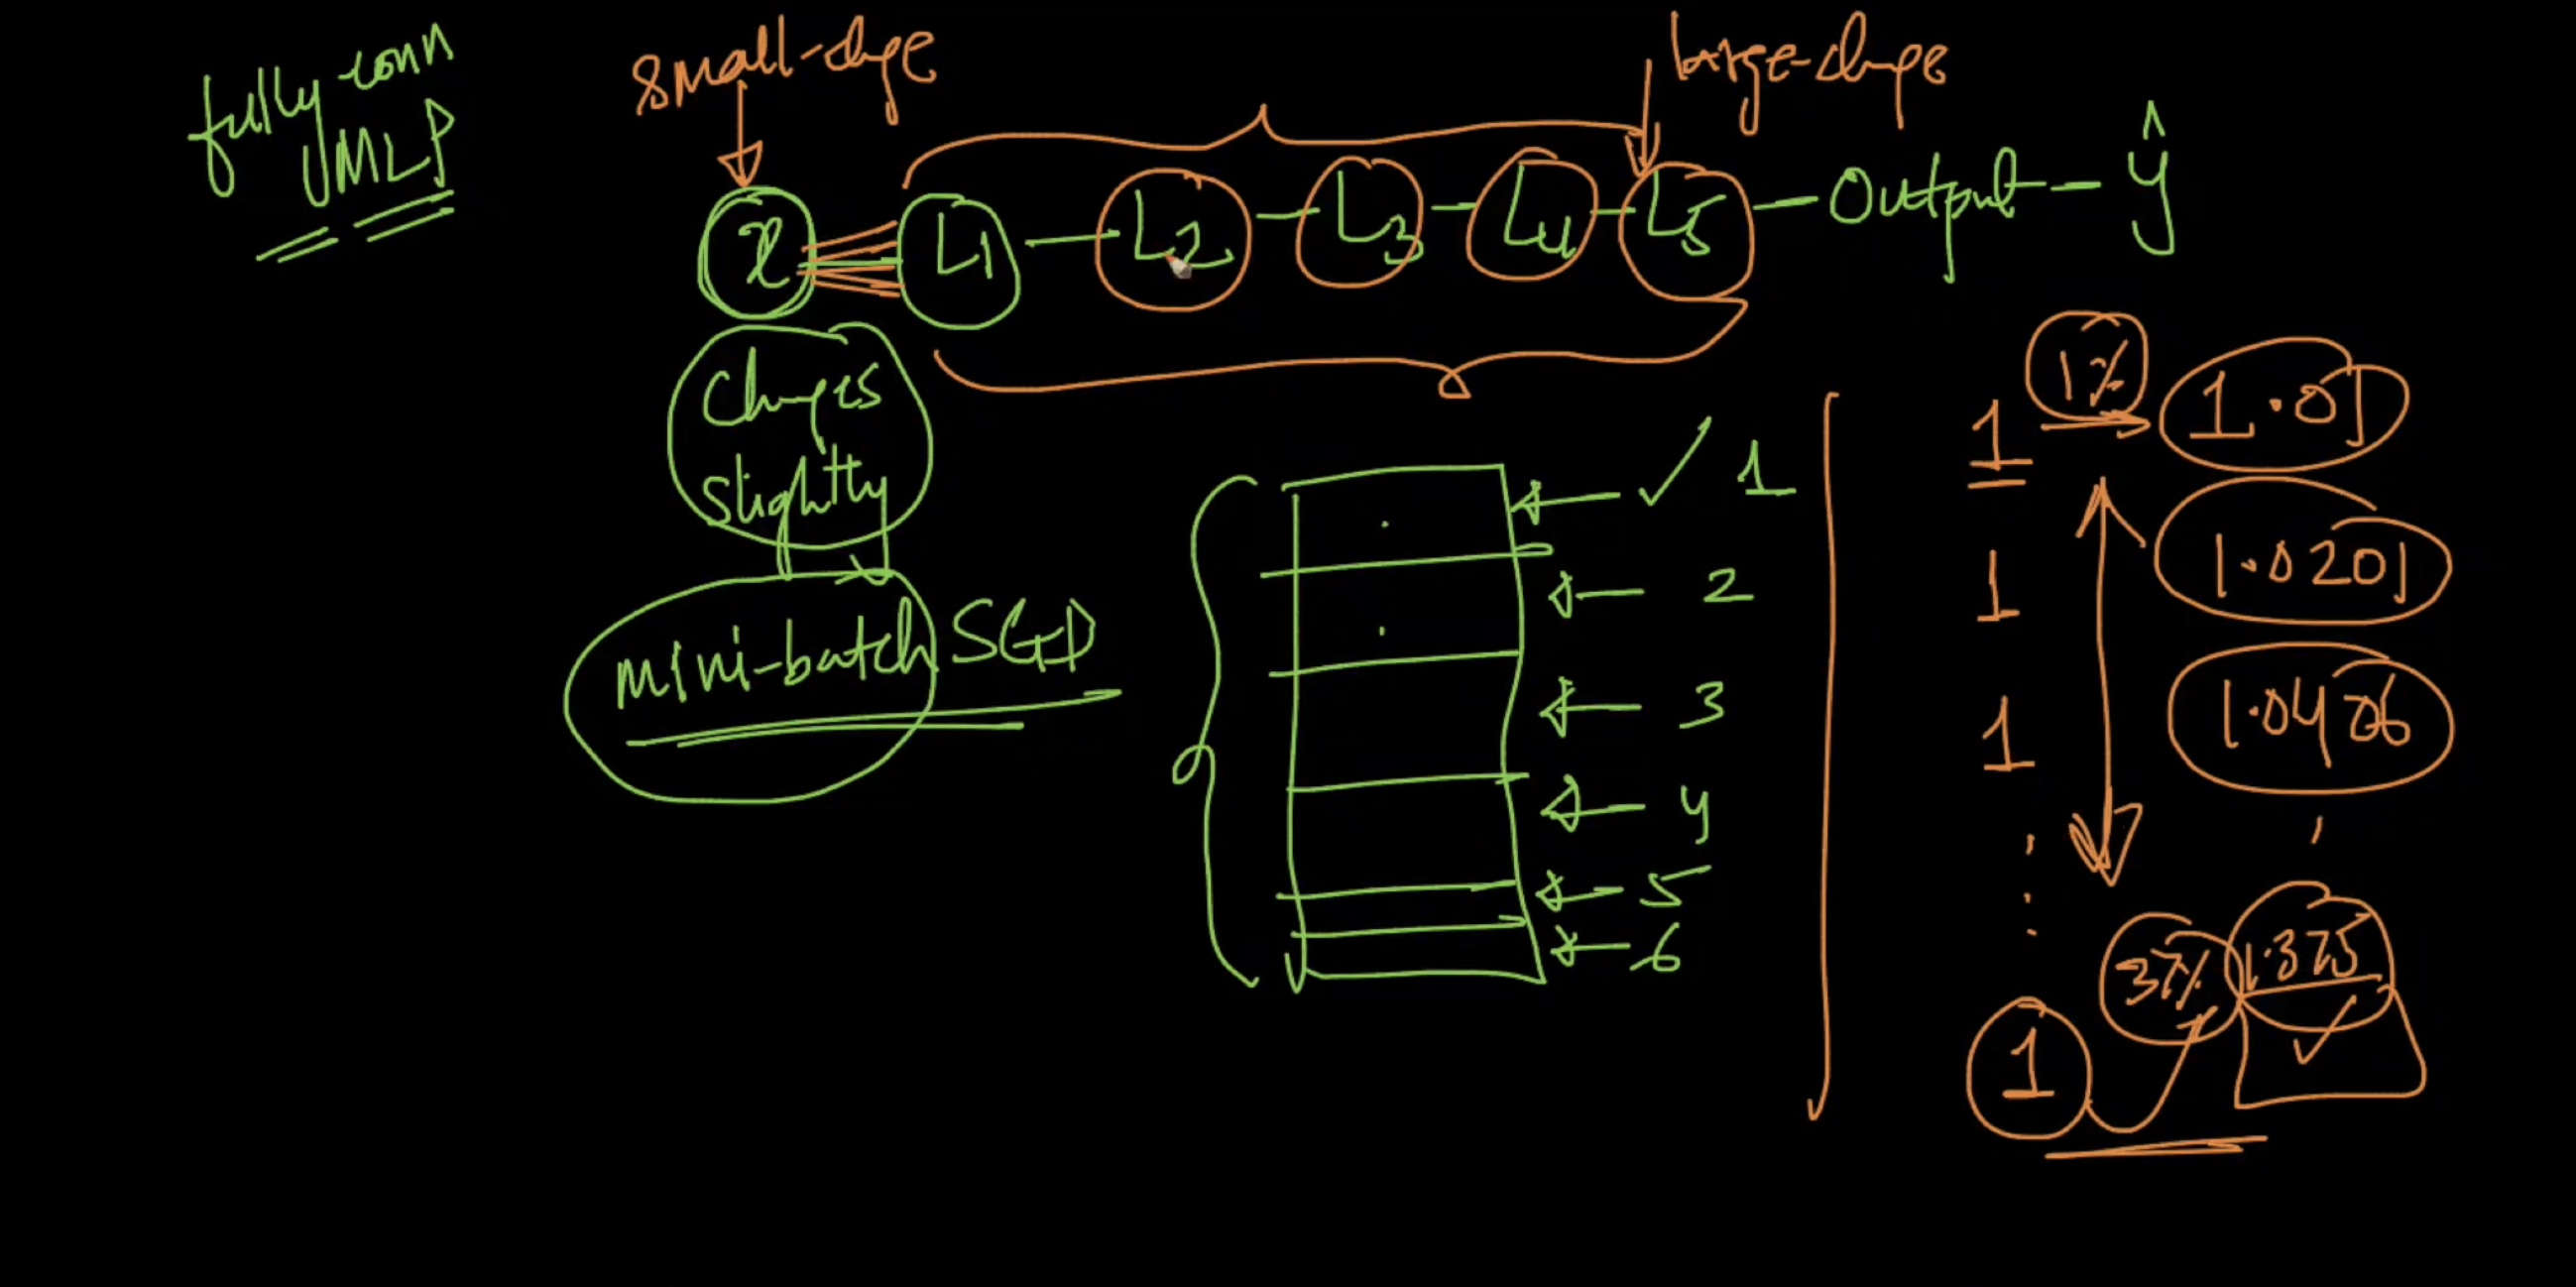 fully-conn
MLP
small-chge
large-change
x L1 — L2 — L3 — L4 — L5 — Output — ŷ
Changes
slightly
mini-batch SGD
1
2
3
4
5
6
1 1% 1.01
1 1.0201
1 1.0406
1 37% 1.375